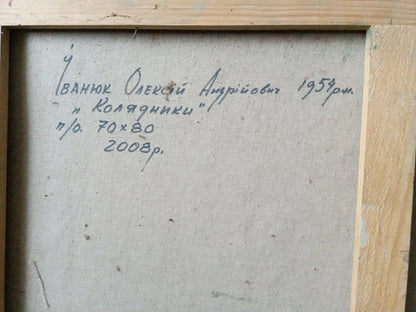 Іванюк Олексій Андрійович 1954р.н.
„Колядники"
п/о. 70х80
2008р.